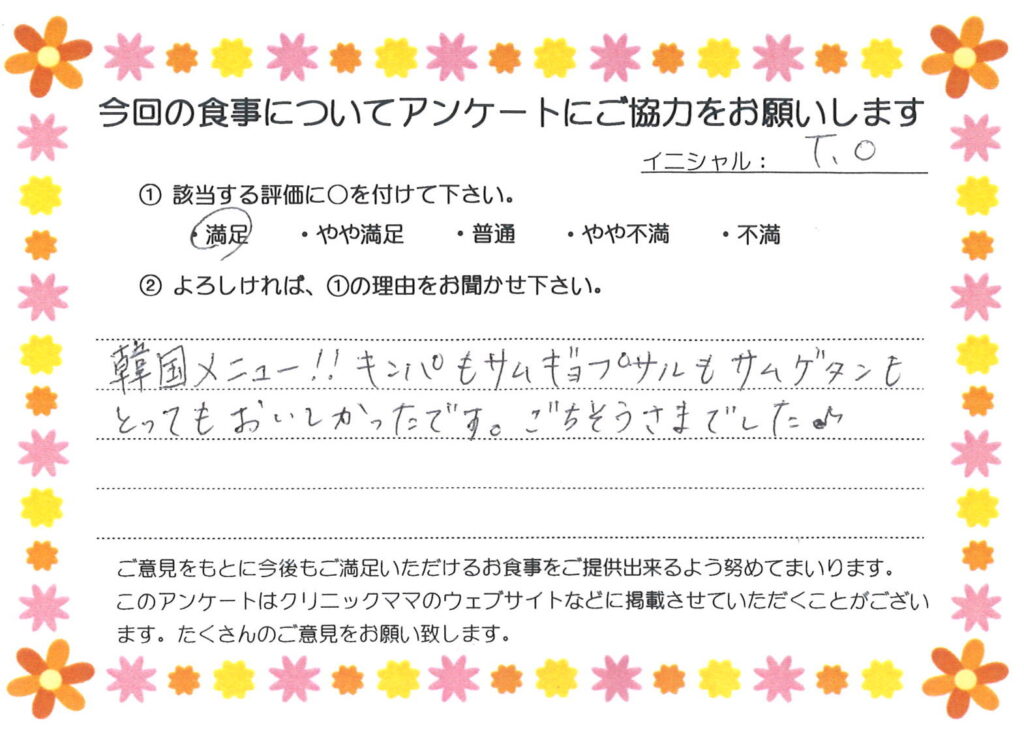 今回の食事についてアンケートにご協力をお願いします
イニシャル： T.O
① 該当する評価に○を付けて下さい。
・満足 ・やや満足 ・普通 ・やや不満 ・不満
② よろしければ、①の理由をお聞かせ下さい。
韓国メニュー!! キンパもサムギョプサルもサムゲタンも
とってもおいしかったです。ごちそうさまでした♪
ご意見をもとに今後もご満足いただけるお食事をご提供出来るよう努めてまいります。
このアンケートはクリニックママのウェブサイトなどに掲載させていただくことがござい
ます。たくさんのご意見をお願い致します。